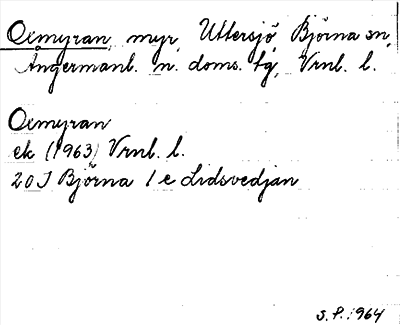 Oxmyran, myr, Uttersjö, Björna sn,
Ångermanl. n. doms. tg, Vrnl. l.
Oxmyran
ek (1963) Vrnl. l.
20 J Björna 1 e Lidsvedjan
S.P. 1964